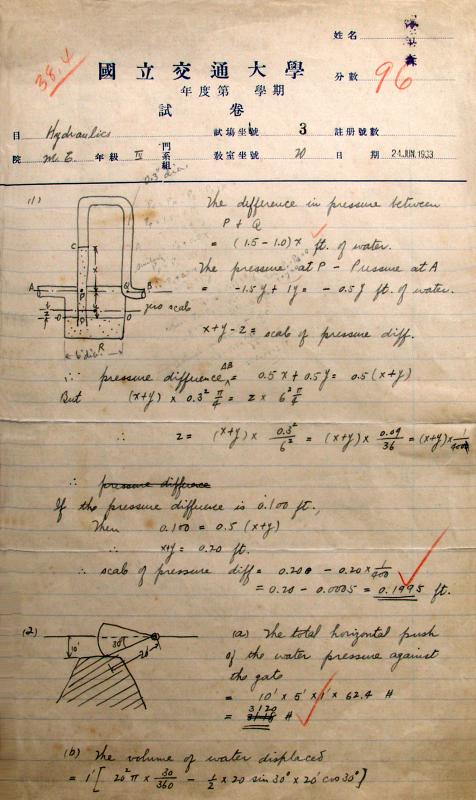 姓名
38.4
國立交通大學
分數 96
年度第 學期
試卷
目 Hydraulics 試場坐號 3 註册號數
院 M.E. 年級 IV 門系組 教室坐號 20 日期 24 JUN.1933
0.3" dia.
(1) The difference in pressure between
P & Q
= (1.5 - 1.0) x ft. of water.
The pressure at P - Pressure at A
= -1.5y + 1y = -0.5y ft. of water.
C
A
P
Q
B
zero scale
R
6" dia.
x + y - z = scale of pressure diff.
∴ pressure difference AB = 0.5x + 0.5y = 0.5(x+y)
But (x+y) x 0.3² π/4 = z x 6² π/4
∴ z = (x+y) x 0.3²/6² = (x+y) x 0.09/36 = (x+y) x 1/400
∴ pressure difference
If the pressure difference is 0.100 ft.,
Then 0.100 = 0.5 (x+y)
∴ x+y = 0.20 ft.
∴ scale of pressure diff = 0.200 - 0.20 x 1/400
= 0.20 - 0.0005 = 0.1995 ft.
(2) (a) The total horizontal push
10'
30°
20'
of the water pressure against
the gate
= 10' x 5' x 1' x 62.4 #
= 3120 #
(b) The volume of water displaced
= 1' [ 20² π x 30/360 - 1/2 x 20 sin 30° x 20' cos 30° ]